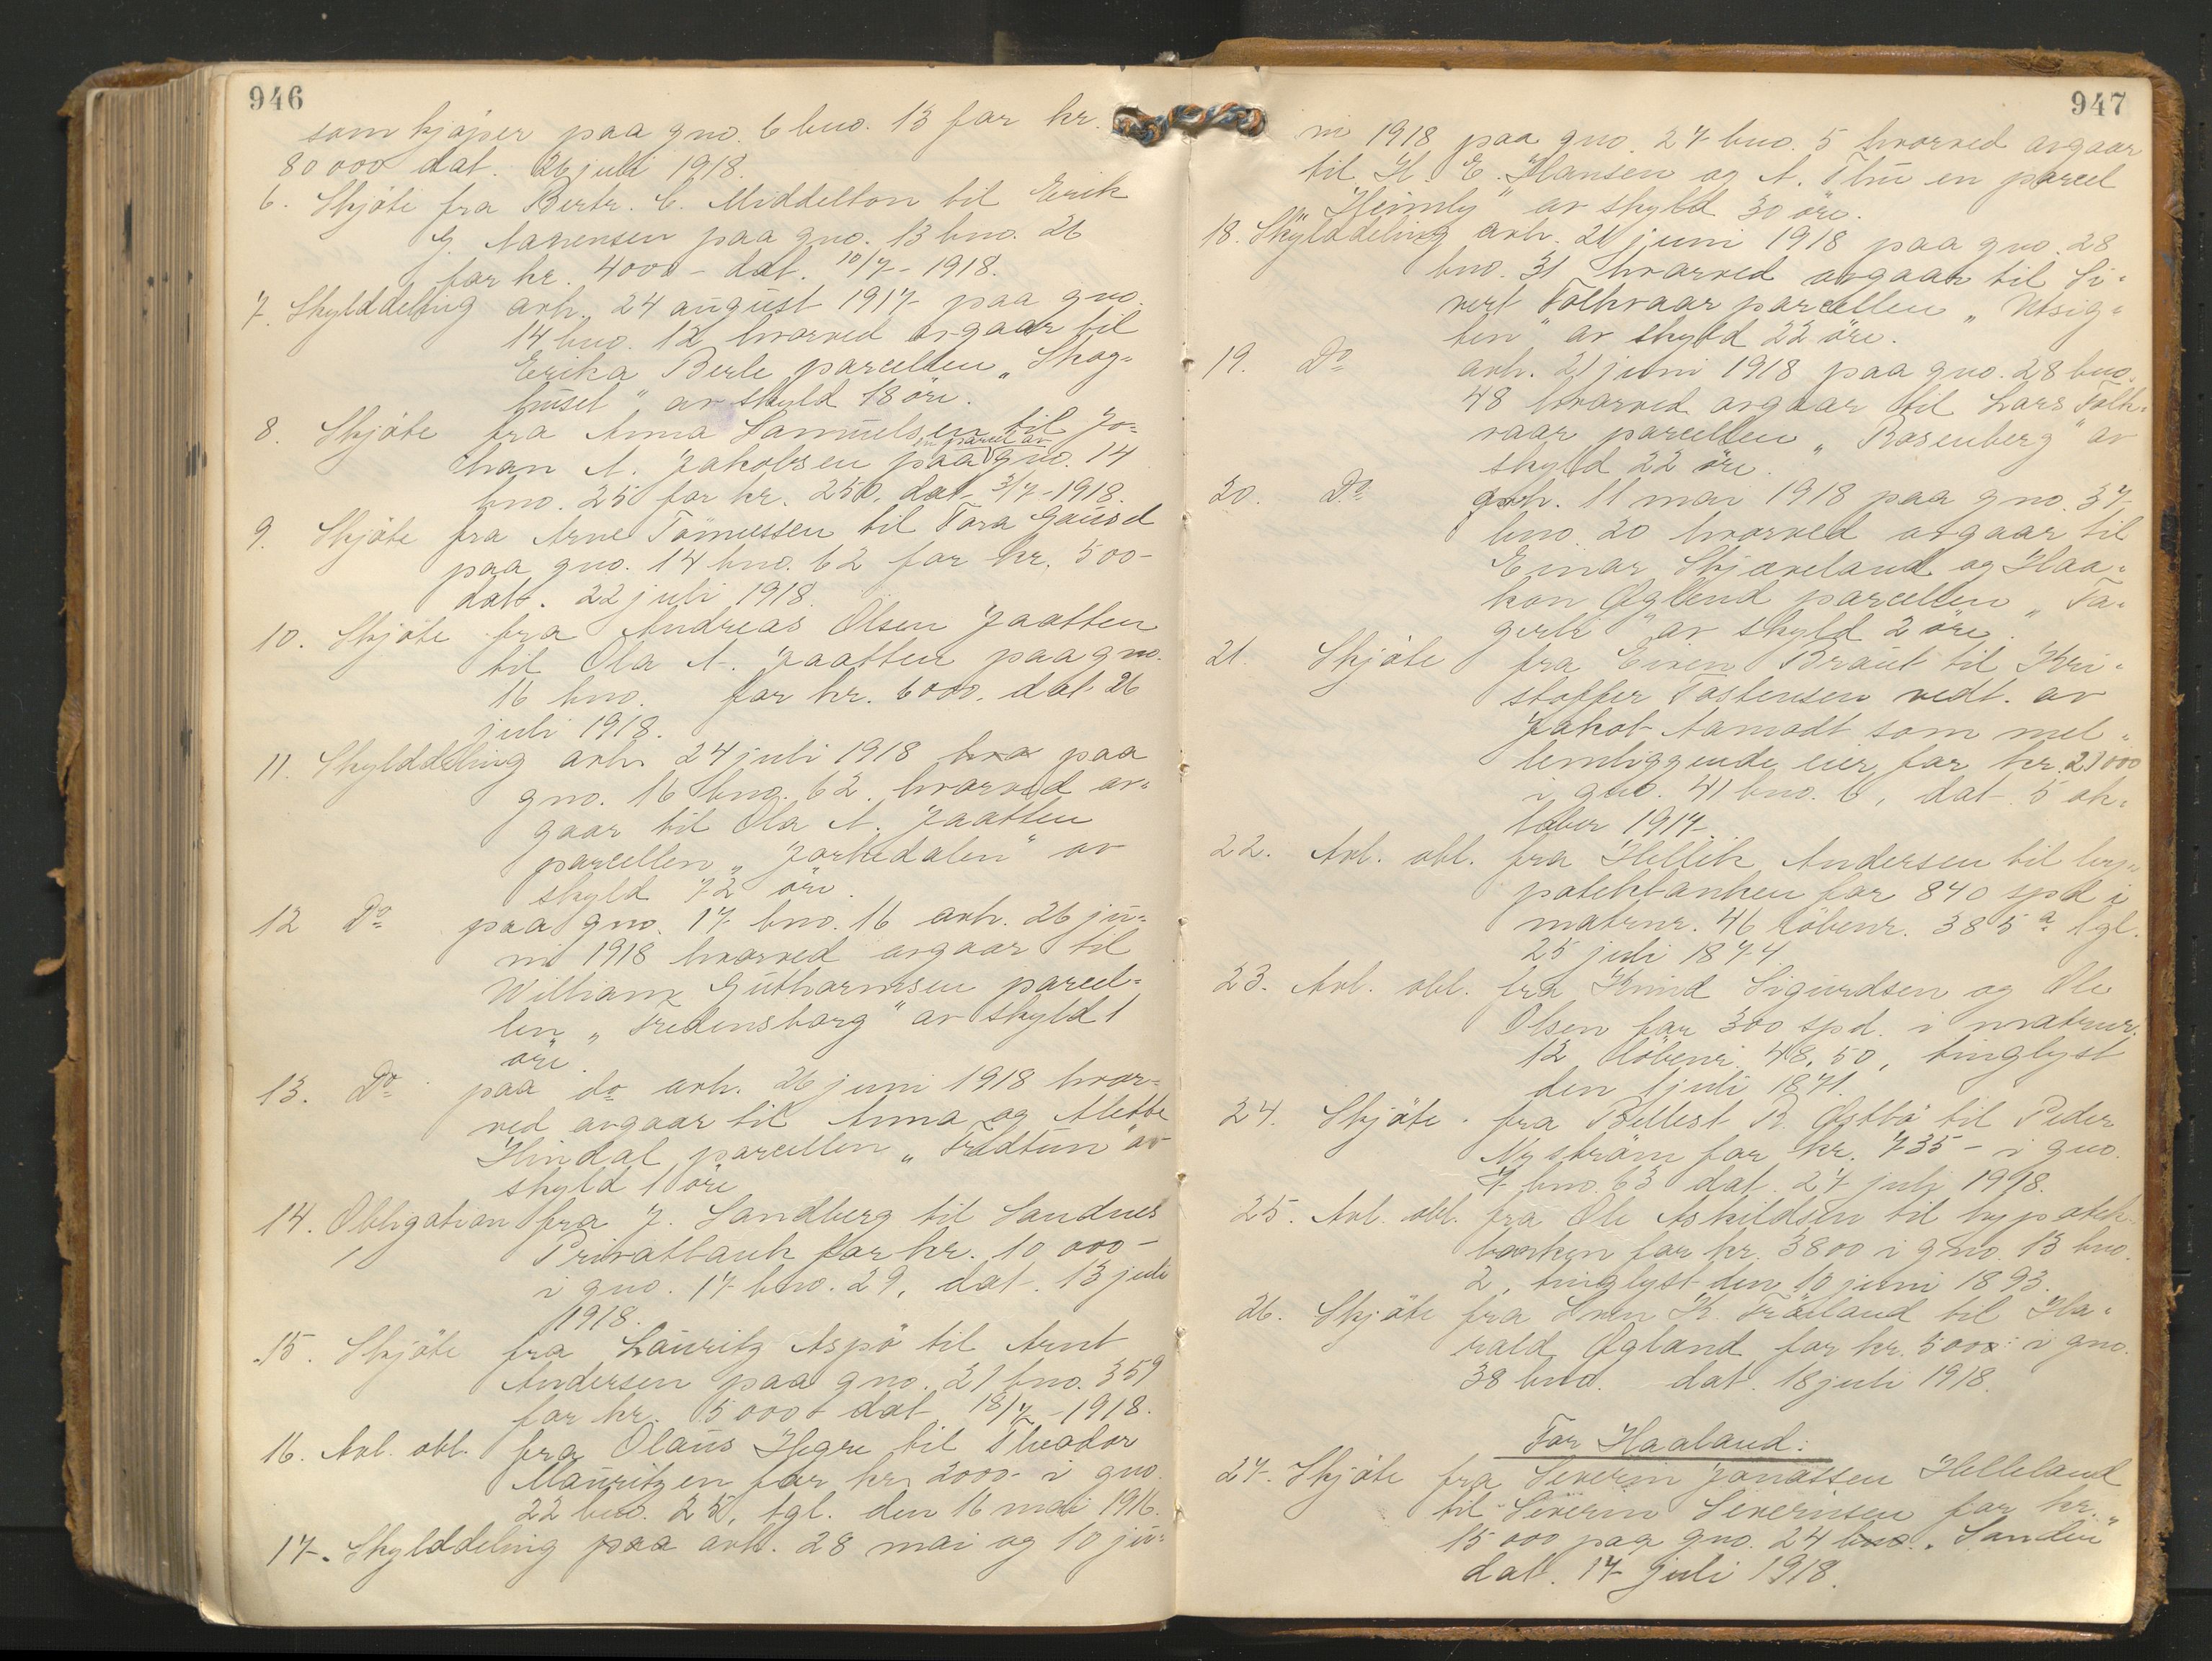 946
som kjøper paa gno. 6 bno. 13 for kr.
80 000 dat. 26 juli 1918.
6. Skjöte fra Bertr. C. Middelton til Erik
G. Aanensen paa gno. 13 bno. 26
for kr. 4000 - dat. 10/7 - 1918.
7. Skylddeling avh. 24 august 1917 paa gno.
14 bno. 12 hvorved avgaar til
Erika Berle parcellen „Skog-
huset" av skyld 18 öre.
8. Skjöte fra Anna Samuelsen til Jo-
en parcel av
han A. Jakobsen paa gno. 14
bno. 25 for kr. 250, dat. 3/7 - 1918.
9. Skjöte fra Arne Tönnessen til Tora Gausel
paa gno. 14 bno. 62 for kr. 500 -
dat. 22 juli 1918.
10. Skjöte fra Andreas Olsen Jaatten
til Ola A. Jaatten paa gno.
16 bno. for kr. 6000. dat. 26
juli 1918.
11. Skylddeling avh. 24 juli 1918 hvo paa
gno. 16 bno. 62. hvorved av-
gaar til Ola A. Jaatten
parcellen „Jorkedalen" av
skyld 72 öre.
12 Do paa gno. 17 bno. 16 avh. 26 ju-
ni 1918 hvorved avgaar til
William Guthormsen parcel-
len „Fredensborg" av skyld 1
öre.
13. Do paa do avh. 26 juni 1918 hvor-
ved avgaar til Anna og Alette
Hindal parcellen „Fredtun" av
skyld 1 öre
14. Obligation fra J. Sandberg til Sandnes
Privatbank for kr. 10 000 -
i gno. 17 bno. 29, dat. 13 juli
1918.
15. Skjöte fra Lauritz Aspö til Arnt
Andersen paa gno. 21 bno. 359
for kr. 5000 - dat 18/7 - 1918.
16. Avl. obl. fra Olaus Hegre til Theodor
Mauritzen for kr. 2000 - i gno.
22 bno. 25, tgl. den 16 mai 1916.
17. Skylddeling paa avh. 28 mai og 10 ju-
947
ni 1918 paa gno. 27 bno. 5 hvorved avgaar
til H. E. Hansen og A. Thu en parcel
„Heimly" av skyld 30 öre.
18. Skylddeling avh. 21 juni 1918 paa gno. 28
bno. 31 hvorved avgaar til Si-
vert Folkvaar parcellen „Utsig-
ten" av skyld 22 öre.
19. Do avh. 21 juni 1918 paa gno. 28 bno.
48 hvorved avgaar til Lars Folk-
vaar parcellen „Rosenberg" av
skyld 22 öre.
20. Do avh. 11 mai 1918 paa gno. 37
bno. 20 hvorved avgaar til
Einar Skjæveland og Haa-
kon Øglend parcellen „Fa-
gerli" av skyld 2 öre.
21. Skjöte fra Eiven Braut til Kri-
stoffer Tostensen vedt. av
Jakob Aamodt som mel-
lemliggende eier for kr. 21000
i gno. 41 bno. 6, dat. 5 ok-
tober 1917.
22. Avl. obl. fra Hellik Andersen til hy-
potekbanken for 840 spd i
matrnr. 46 löbenr. 385 a tgl.
25 juli 1874.
23. Avl. obl. fra Knud Sigurdsen og Ole
Olsen for 300 spd. i matrnr.
12 löbenr. 48, 50, tinglyst
den 1 juli 1871.
24. Skjöte fra Bellest R. Østbö til Peder
Nyström for kr. 735 - i gno.
7 bno. 63 dat. 27 juli 1918.
25. Avl. obl. fra Ole Askildsen til hypotek-
banken for kr. 3800 i gno. 13 bno.
2, tinglyst den 10 juni 1893.
26. Skjöte fra Sven K. Fröiland til Ha-
rald Øgland for kr. 5000 - i gno.
38 bno. dat. 18 juli 1918.
For Haaland:
27. Skjöte fra Severin Jonassen Helleland
til Severin Severinsen for kr.
15 000 paa gno. 24 bno. „Sanden"
dat. 17 juli 1918.